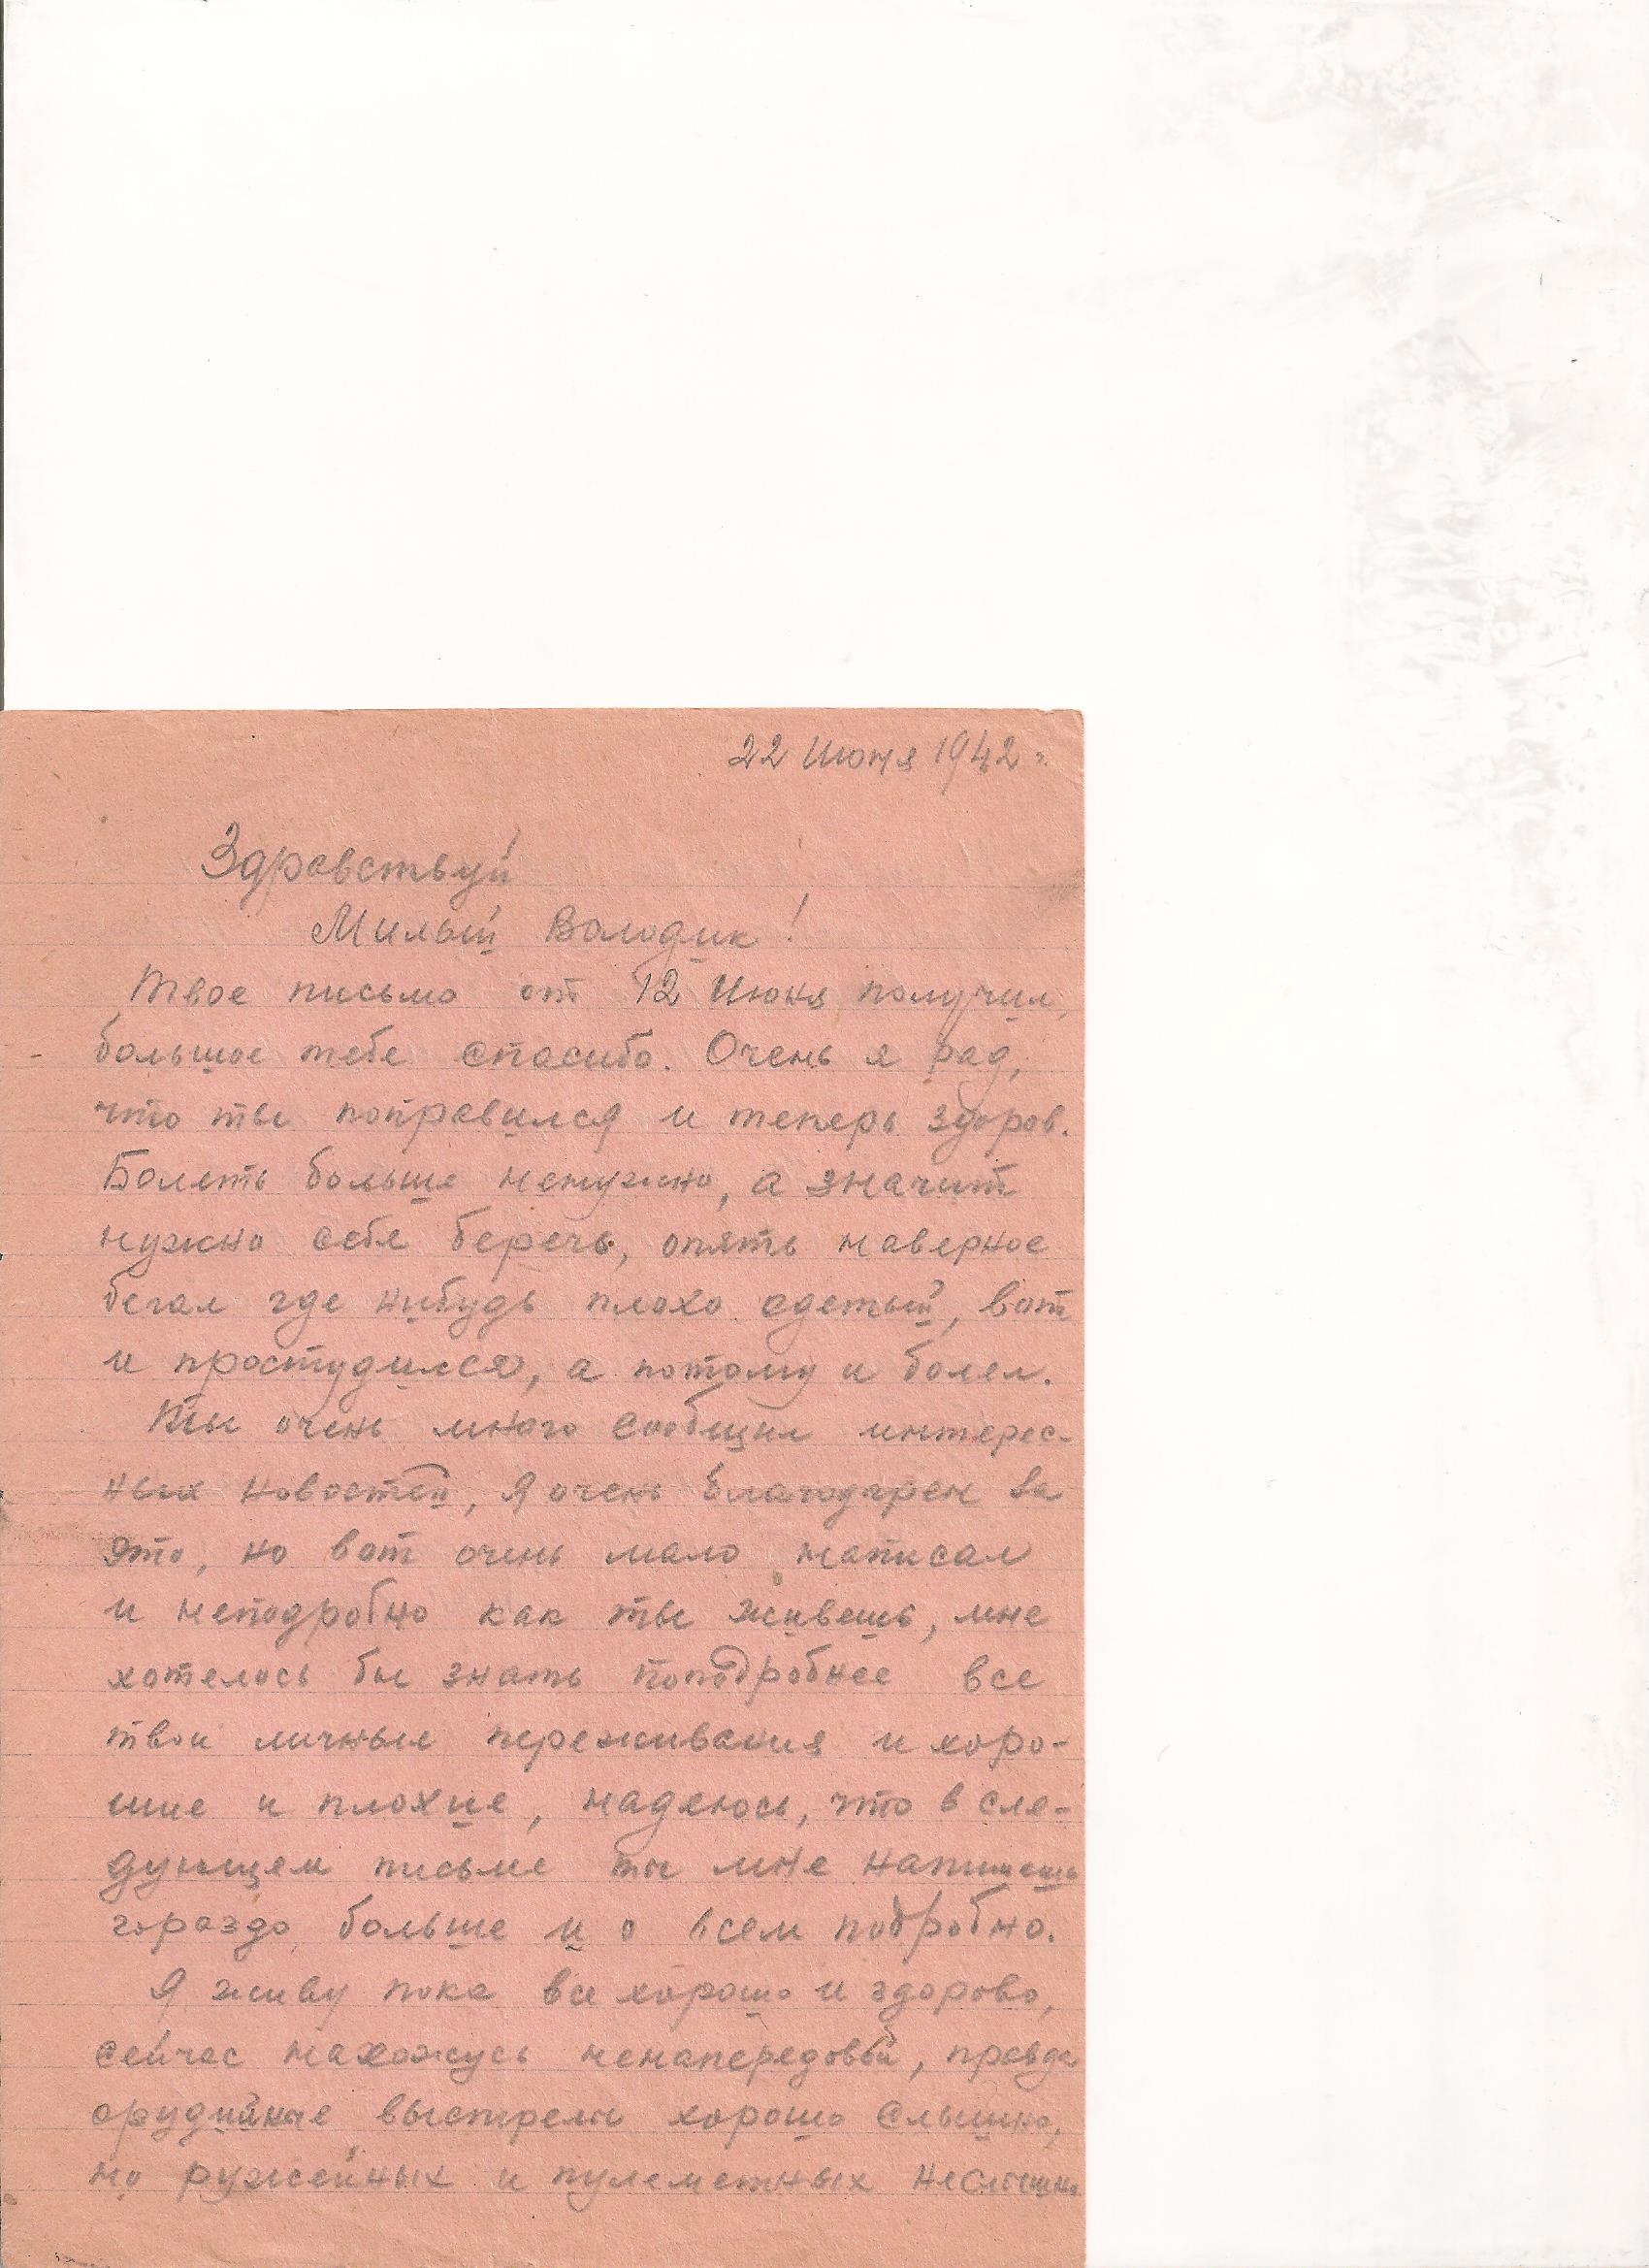 22 Июня 1942 г.
Здравствуй
Милый Володик!
Твое письмо от 12 Июня получил,
большое тебе спасибо. Очень я рад,
что ты поправился и теперь здоров.
Болеть больше ненужно, а значит
нужно себя беречь, опять наверное
бегал где нибудь плохо одетый, вот
и простудился, а потому и болел.
Ты очень много сообщил интерес-
ных новостей, я очень благодарен за
это, но вот очень мало написал
и неподробно как ты живешь, мне
хотелось бы знать поподробнее все
твои личные переживания и хоро-
шие и плохие, надеюсь, что в сле-
дующем письме ты мне напишешь
гораздо больше и о всем подробно.
Я живу пока все хорошо и здорово,
сейчас нахожусь ненапередовой, правда
орудийные выстрелы хорошо слышно,
но ружейных и пулеметных неслышно